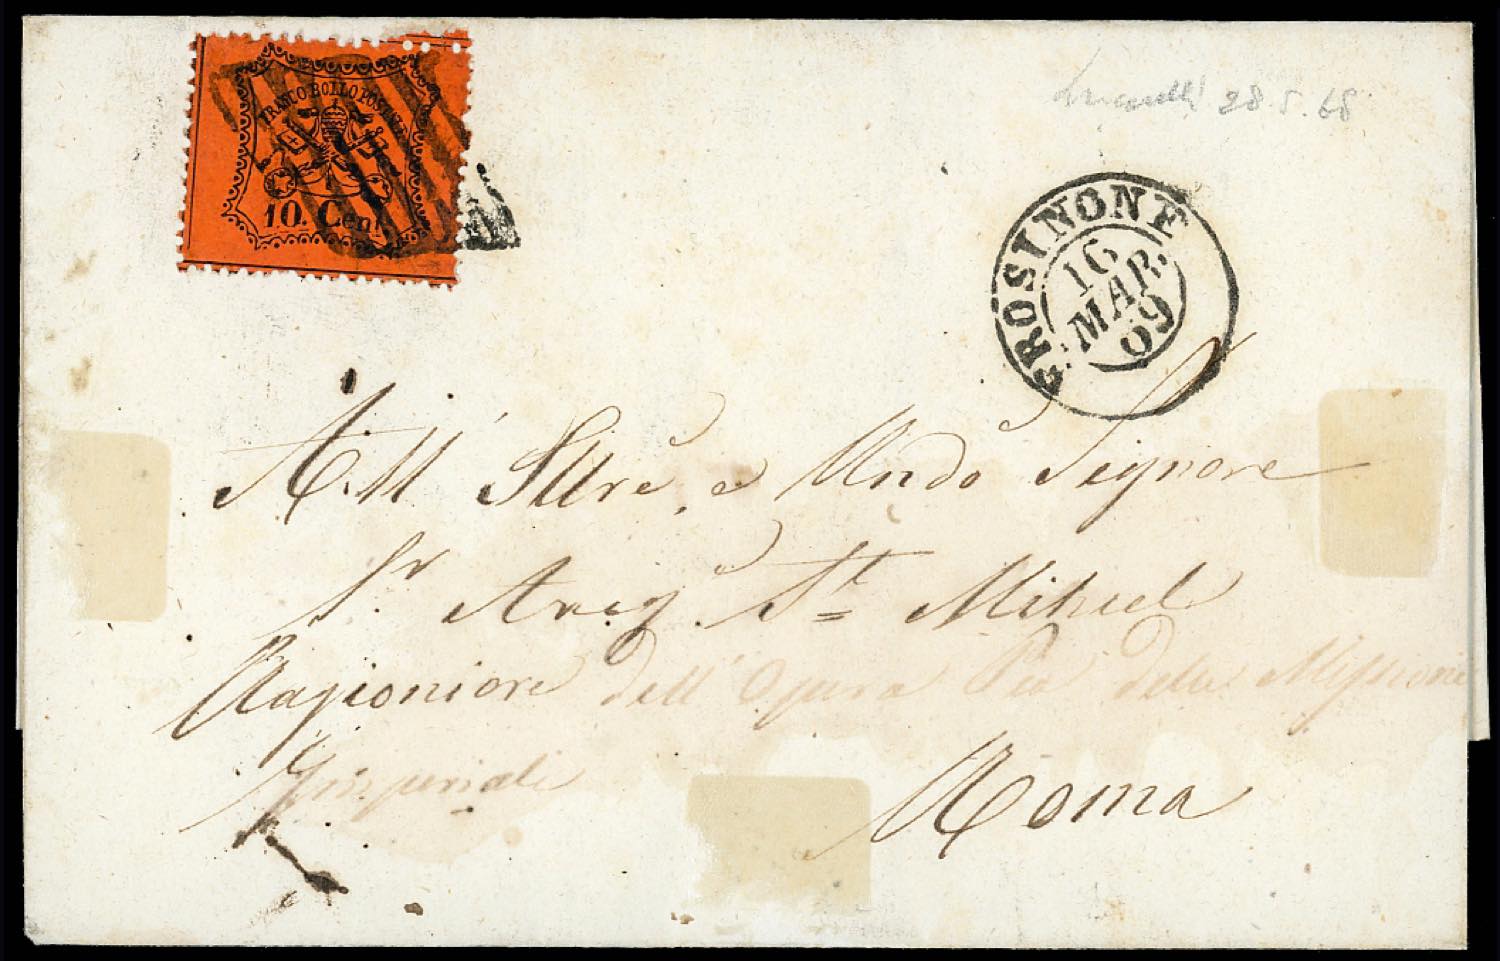 FRANCO BOLLO POSTALE
10. Cent
28 5. 68
FROSINONE
16
MAR.
69
All' Illre. e Signore
Sr St Mihiel
Ragioniore dell' Opera Pia della Missione
Imperiali
Roma